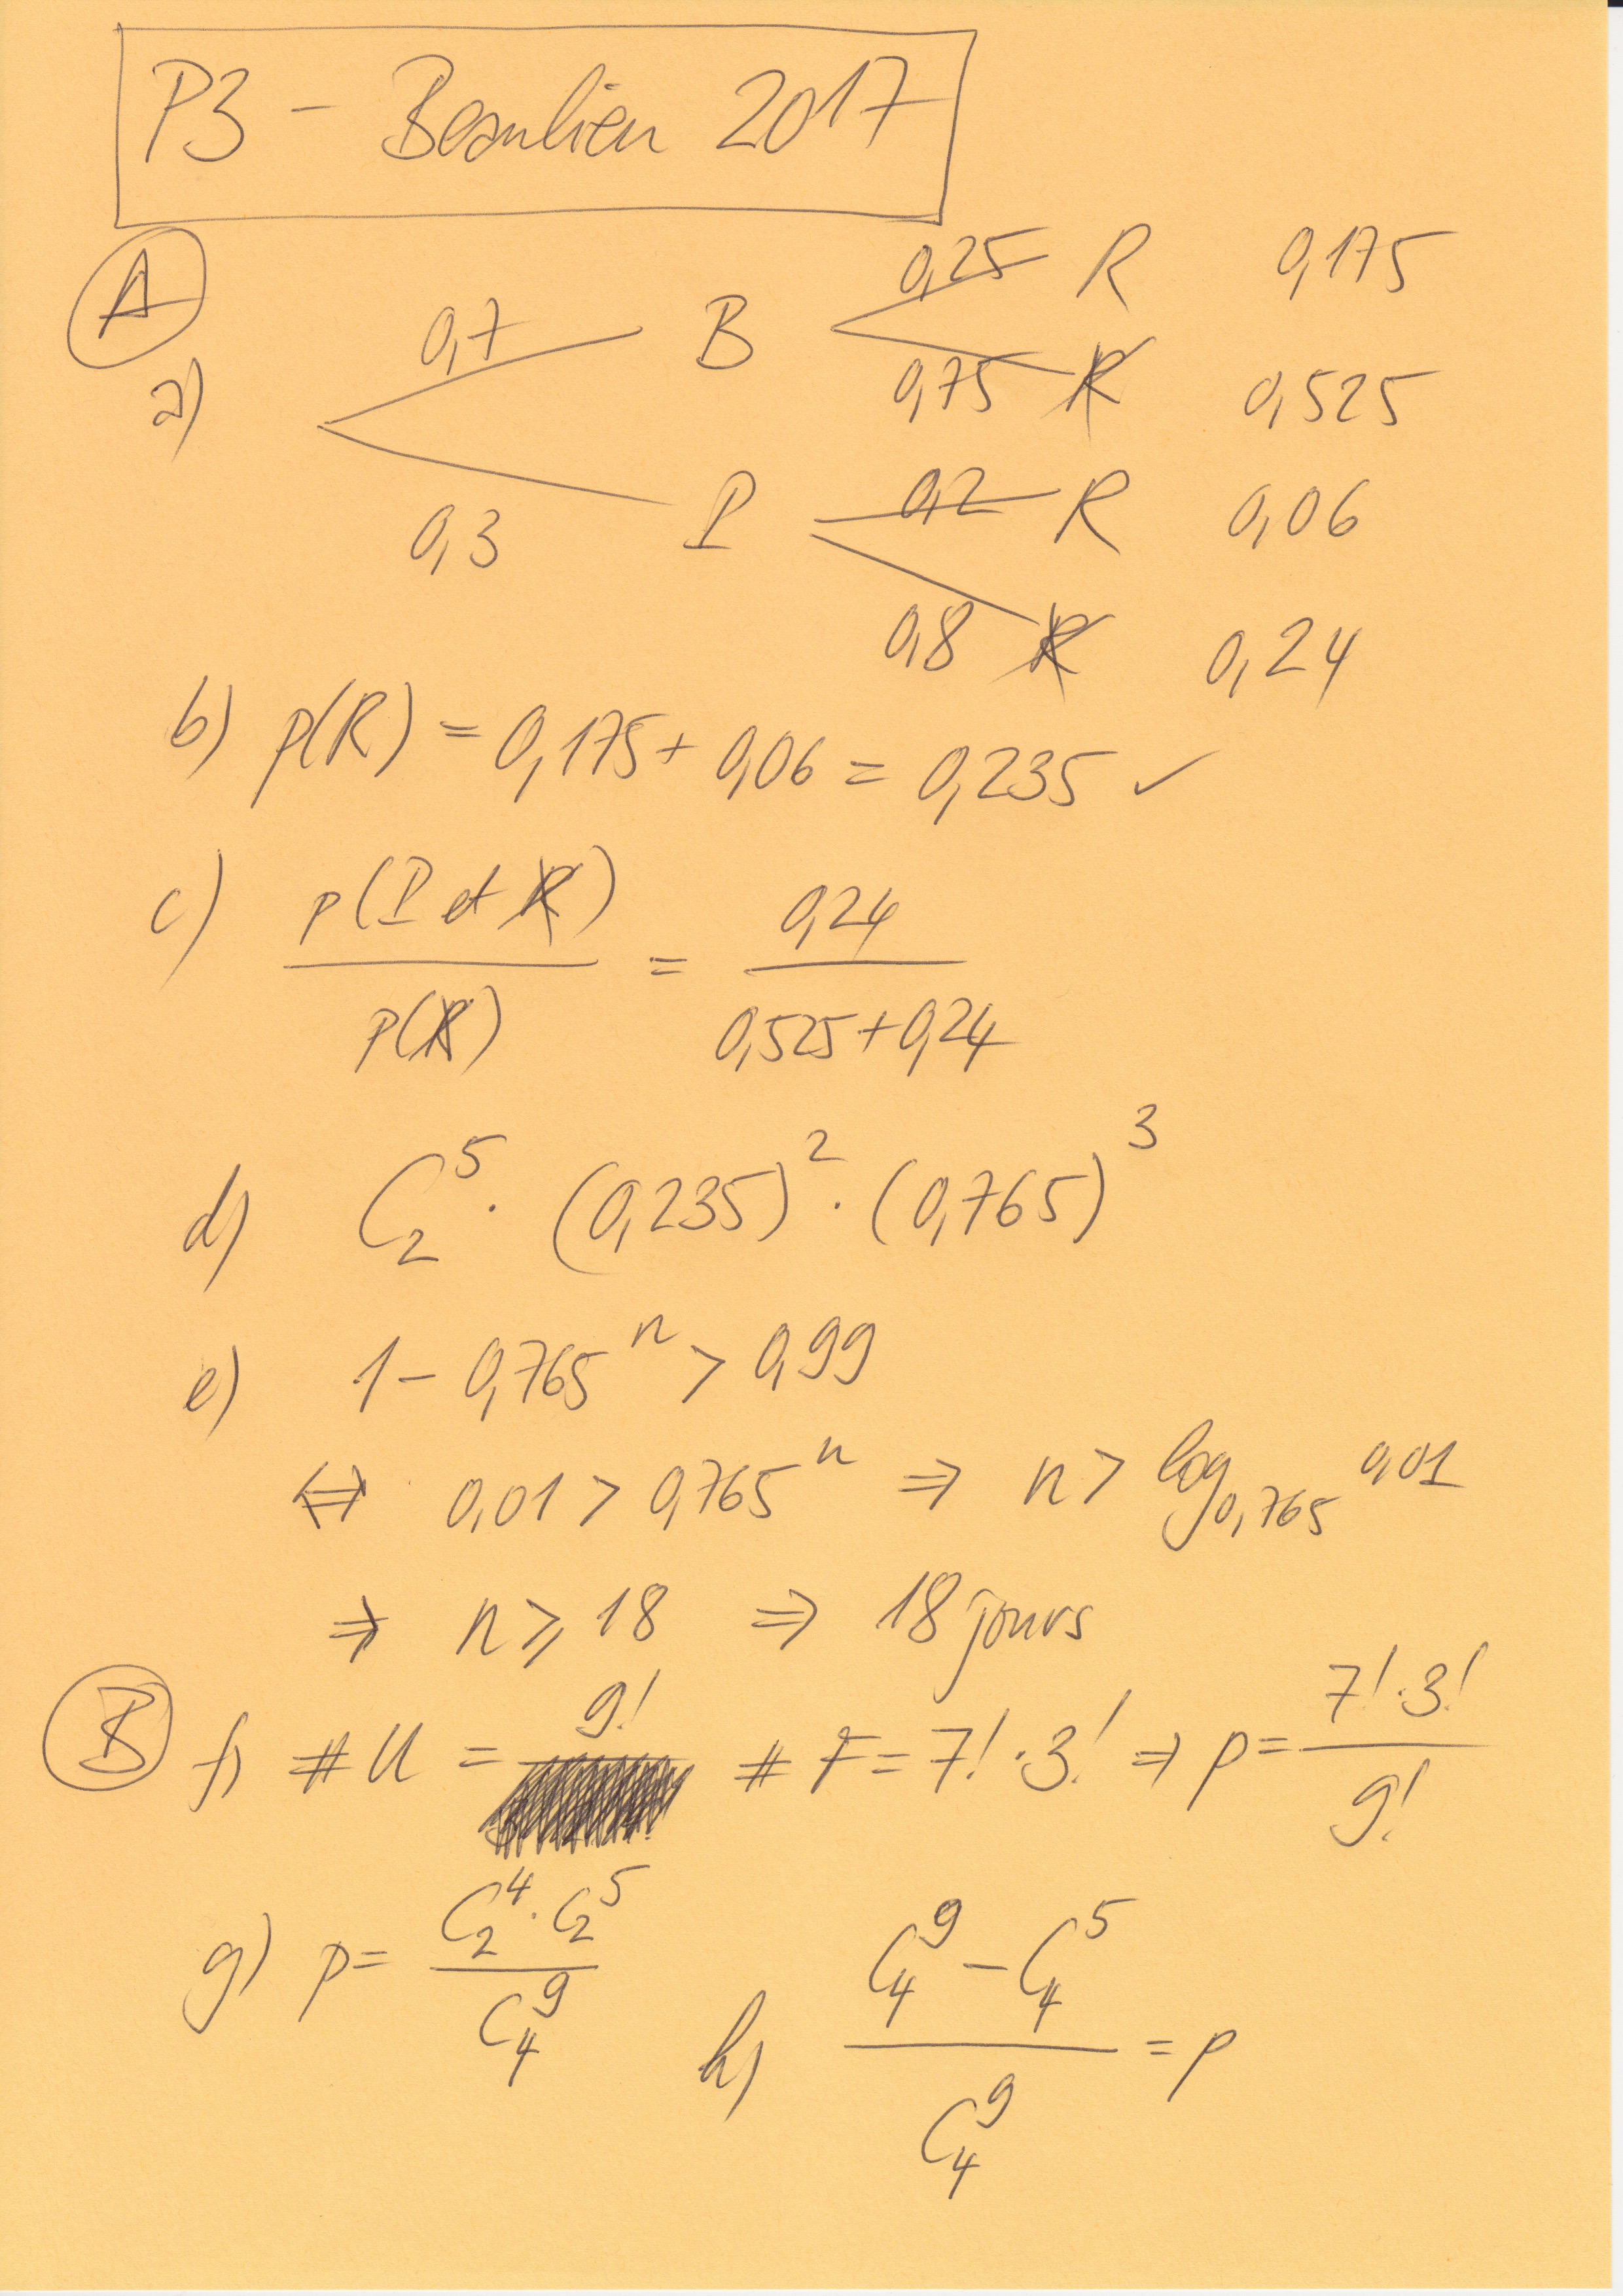 P3 - Beaulieu 2017
A
a) 0,7 B 0,25 R 0,175
0,75 R̸ 0,525
0,3 I 0,2 R 0,06
0,8 R̸ 0,24
b) p(R) = 0,175 + 0,06 = 0,235 ✓
c) p(I et R̸) / p(R̸) = 0,24 / 0,525+0,24
d) C₂⁵ · (0,235)² · (0,765)³
e) 1 - 0,765ⁿ > 0,99
⇔ 0,01 > 0,765ⁿ ⇒ n > log₀,₇₆₅ 0,01
⇒ n ⩾ 18 ⇒ 18 jours
B
f) # U = 9! # F = 7! · 3! ⇒ p = 7! · 3! / 9!
g) p = C₂⁴ · C₂⁵ / C₄⁹
h) C₄⁹ - C₄⁵ / C₄⁹ = p